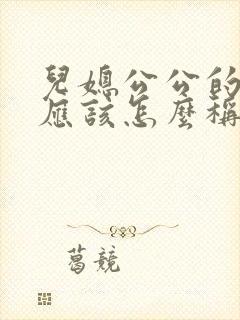 兒媳公公的
應該怎麼稱
葛競